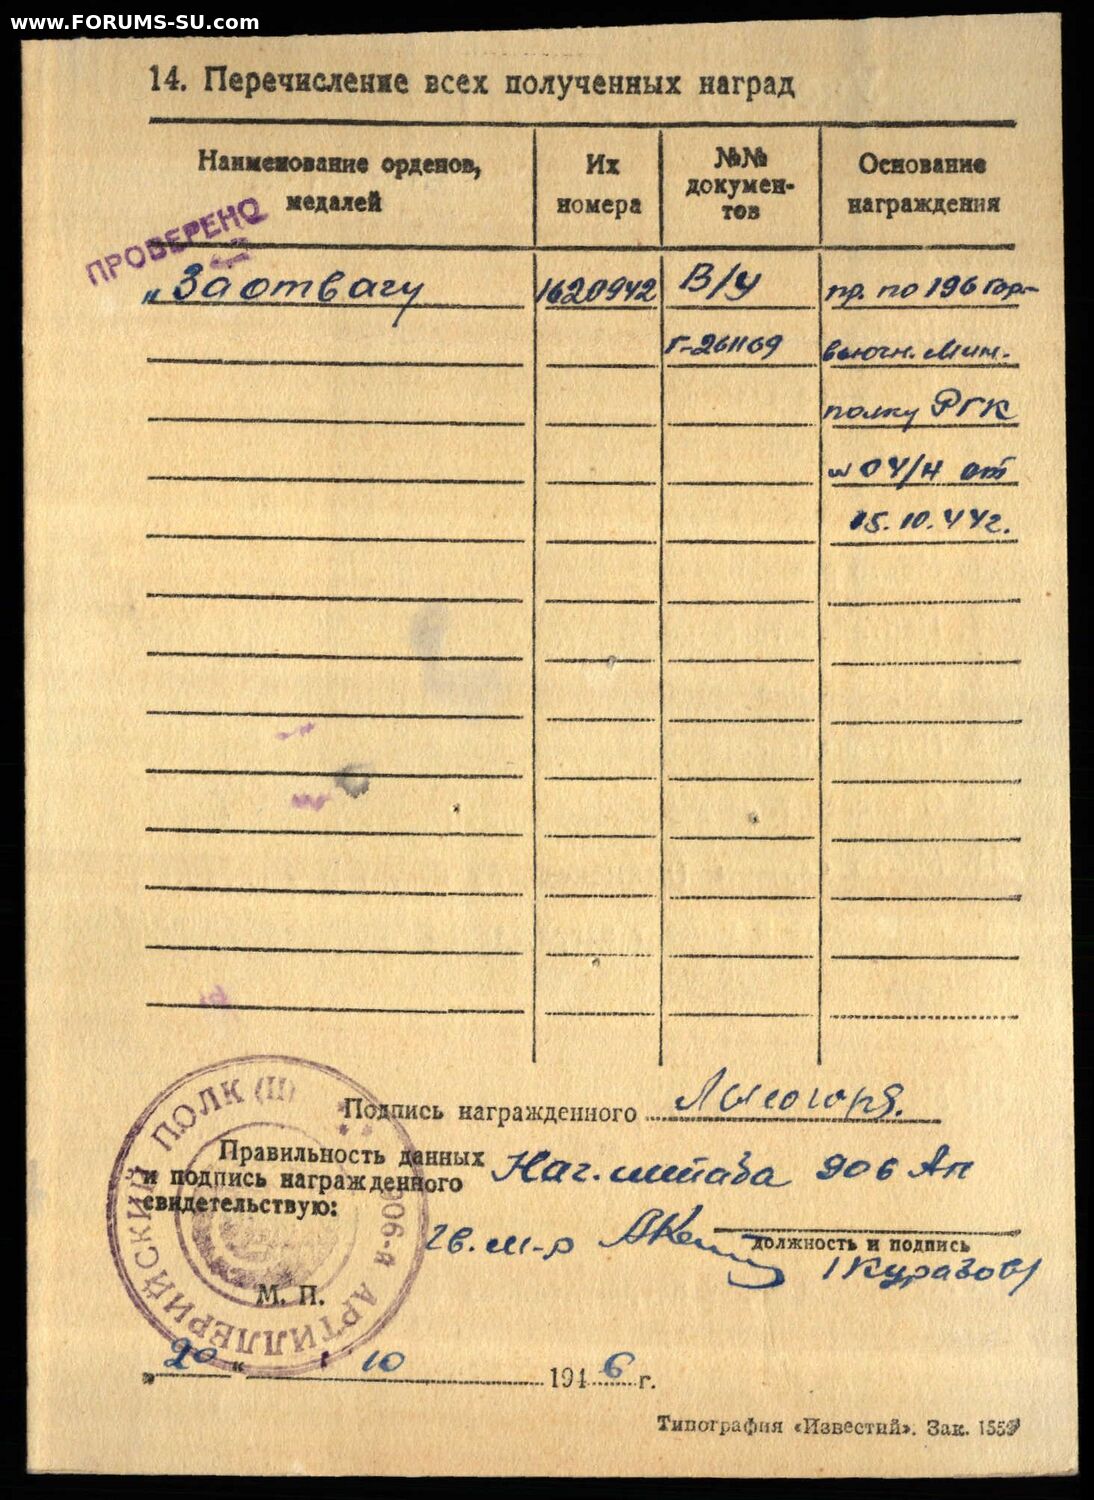 www.FORUMS-SU.com
14. Перечисление всех полученных наград
Наименование орденов, медалей
Их номера
№№ докумен-тов
Основание награждения
ПРОВЕРЕНО
„За отвагу
1620942
В/у
пр. по 196 гор-
Г-261169
вьючн. мин.
полку РГК
№ 04/н от
15.10.44г.
Подпись награжденного
Правильность данных
и подпись награжденного
свидетельствую:
Нач. штаба 906 Ап
гв. м-р
должность и подпись
/Куразов/
М. П.
906-й АРТИЛЛЕРИЙСКИЙ ПОЛК (II)
„20“ 10 1946 г.
Типография «Известий». Зак. 1559